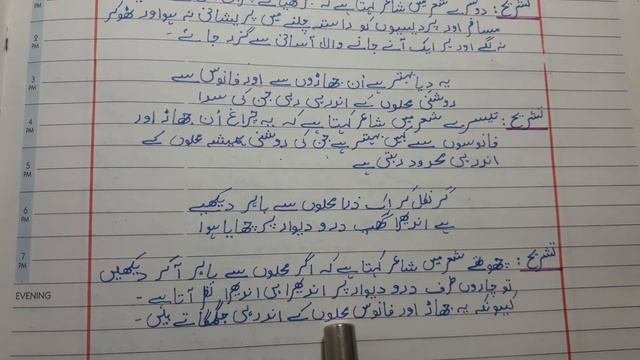 تشریح : دوسرے شعر میں شاعر کہتا ہے کہ
مسافر اور پردیسیوں کو راستہ چلنے میں پریشانی نہ ہو اور ٹھوکر
نہ لگے اور ہر ایک آنے جانے والا آسانی سے گزر جائے -
یہ دیا بہتر ہے اُن جھاڑوں سے اور فانوس سے
روشنی محلوں کے اندر ہی رہی جن کی سدا
تشریح : تیسرے شعر میں شاعر کہتا ہے کہ یہ چراغ اُن جھاڑ اور
فانوسوں سے کہیں بہتر ہے جن کی روشنی ہمیشہ محلوں کے
اندر ہی محدود رہتی ہے
گر نکل کر اک ذرا محلوں سے باہر دیکھیے
ہے اندھیرا گھپ در و دیوار پر چھایا ہوا
تشریح : چوتھے شعر میں شاعر کہتا ہے کہ اگر محلوں سے باہر آ کر دیکھیں
تو چاروں طرف در و دیوار پر اندھیرا ہی اندھیرا نظر آتا ہے -
کیونکہ یہ جھاڑ اور فانوس محلوں کے اندر ہی جگمگاتے ہیں -
2 PM
3 PM
4 PM
5 PM
6 PM
7 PM
EVENING